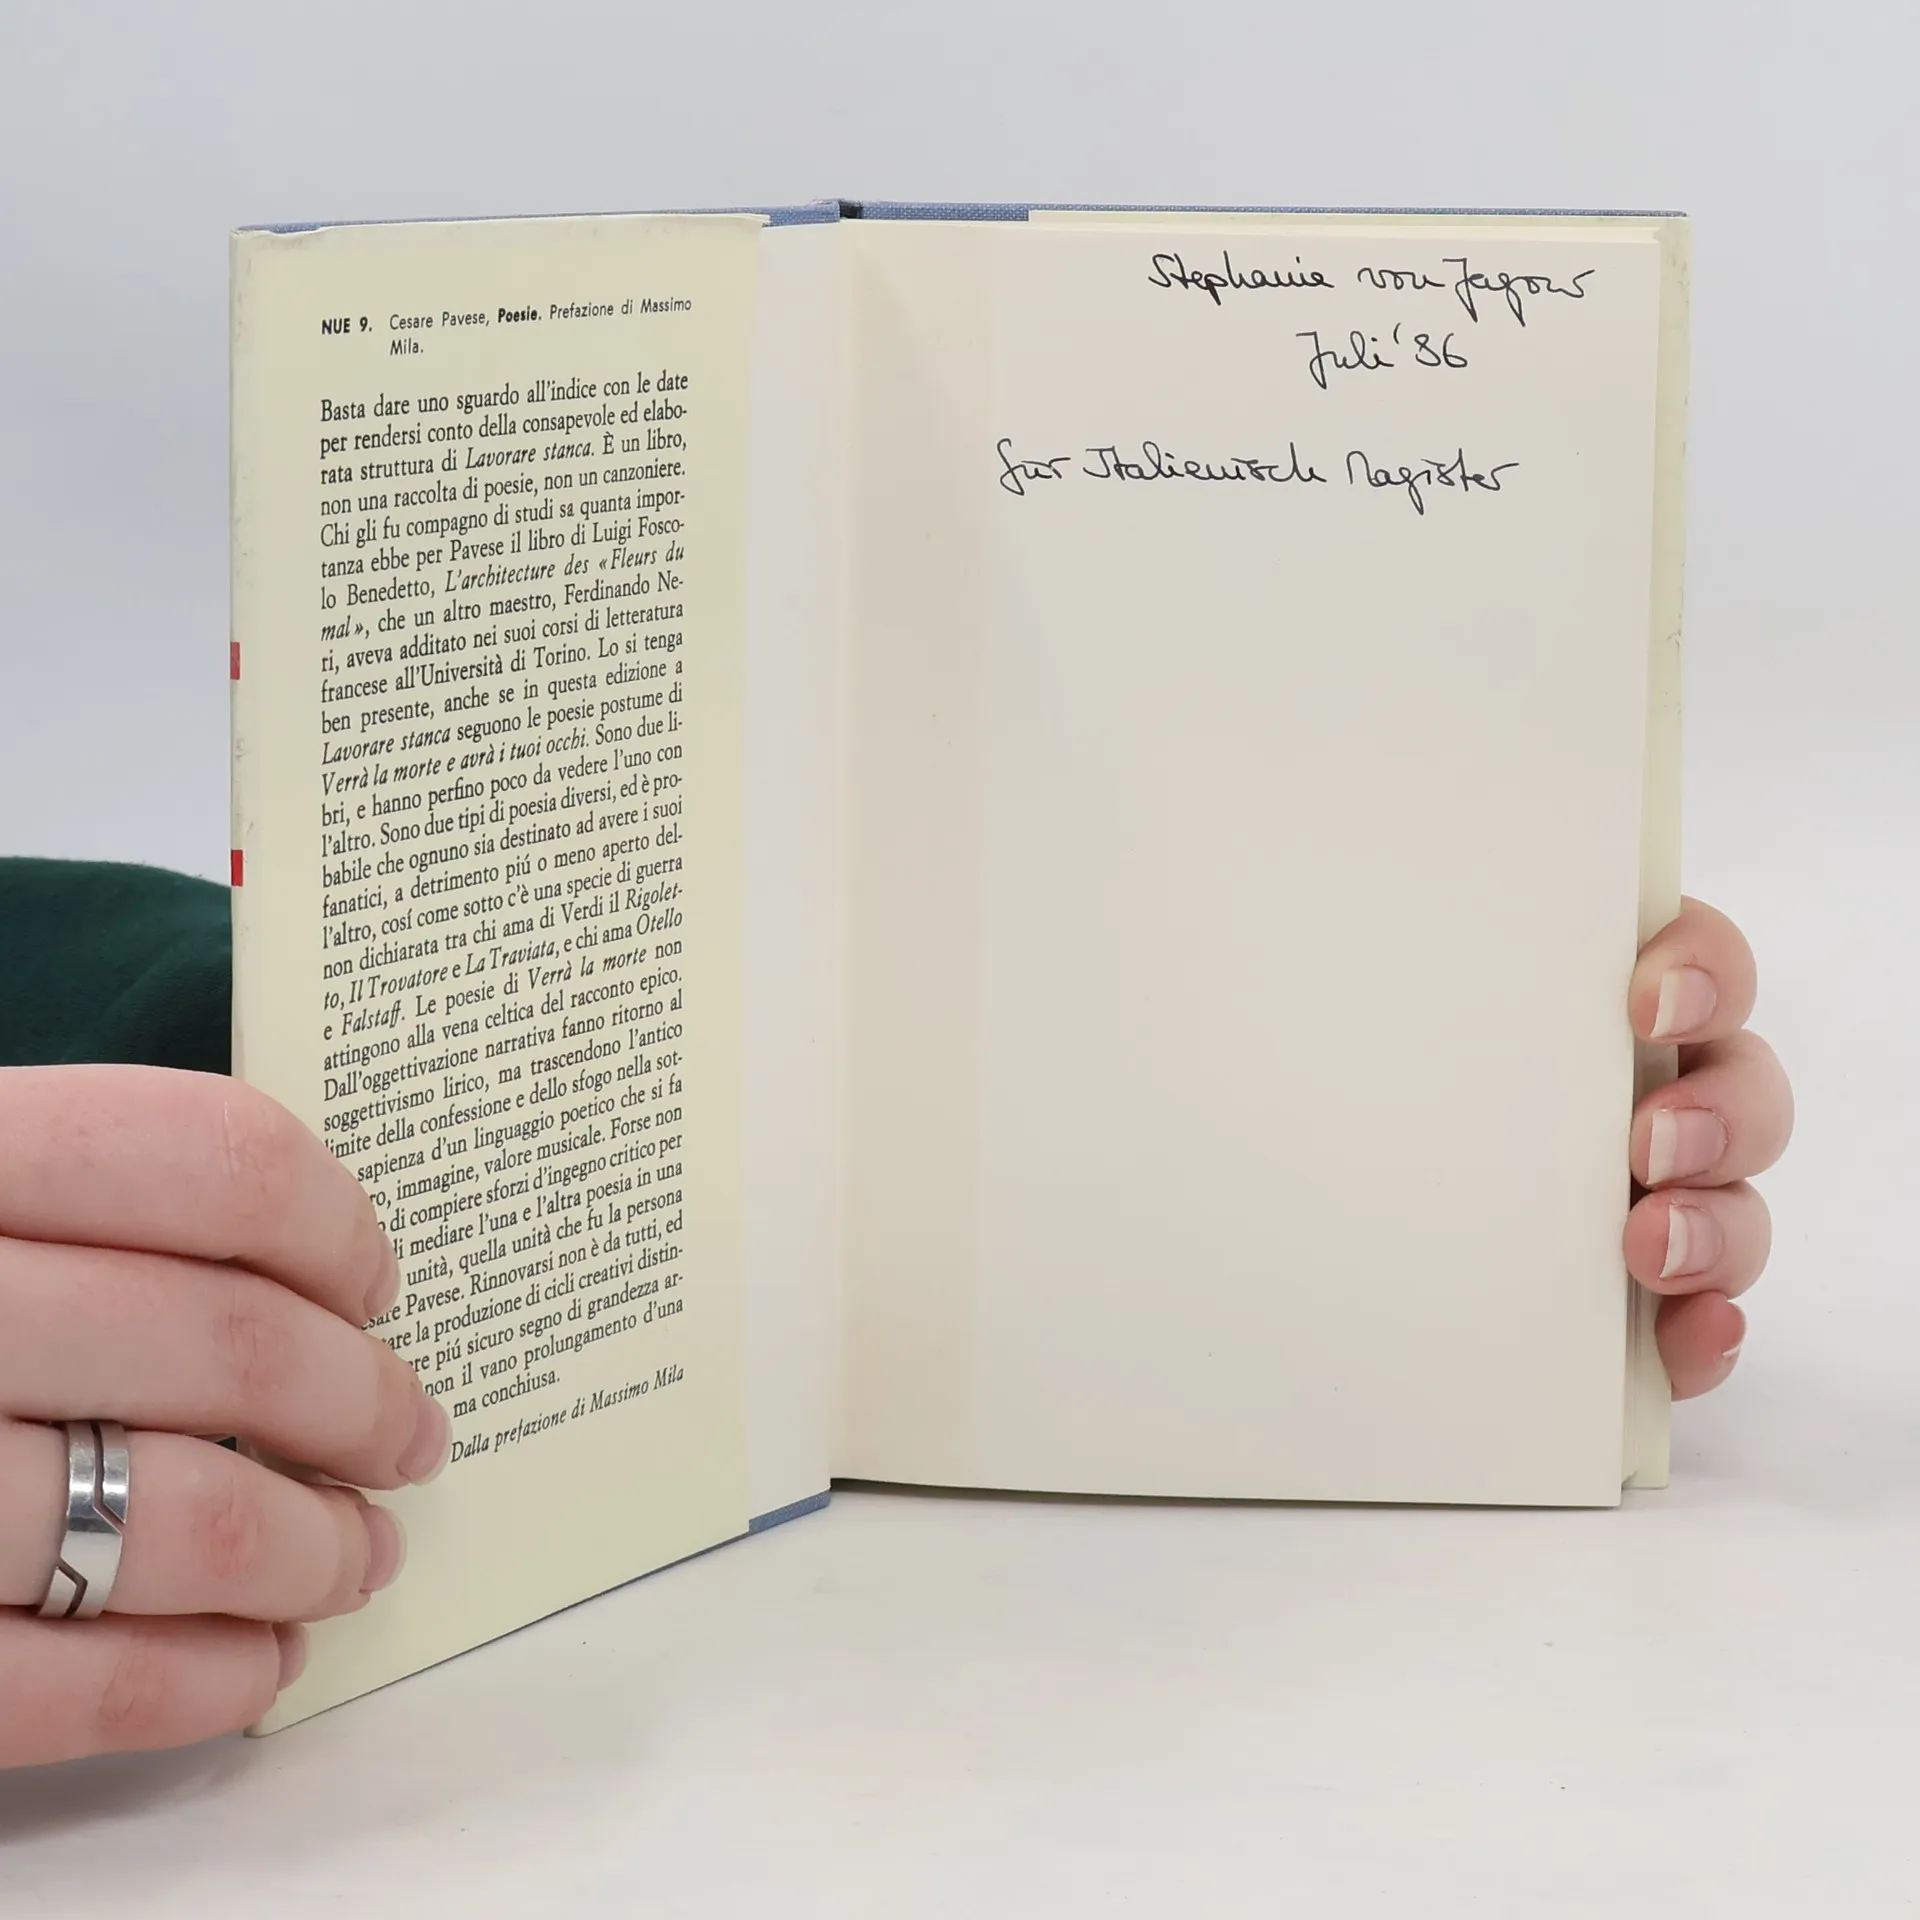 NUE 9. Cesare Pavese, Poesie. Prefazione di Massimo
Mila.
Basta dare uno sguardo all'indice con le date
per rendersi conto della consapevole ed elabo-
rata struttura di Lavorare stanca. È un libro,
non una raccolta di poesie, non un canzoniere.
Chi gli fu compagno di studi sa quanta impor-
tanza ebbe per Pavese il libro di Luigi Fosco-
lo Benedetto, L'architecture des «Fleurs du
mal», che un altro maestro, Ferdinando Ne-
ri, aveva additato nei suoi corsi di letteratura
francese all'Università di Torino. Lo si tenga
ben presente, anche se in questa edizione a
Lavorare stanca seguono le poesie postume di
Verrà la morte e avrà i tuoi occhi. Sono due li-
bri, e hanno perfino poco da vedere l'uno con
l'altro. Sono due tipi di poesia diversi, ed è pro-
babile che ognuno sia destinato ad avere i suoi
fanatici, a detrimento piú o meno aperto del-
l'altro, cosí come sotto c'è una specie di guerra
non dichiarata tra chi ama di Verdi il Rigolet-
to, Il Trovatore e La Traviata, e chi ama Otello
e Falstaff. Le poesie di Verrà la morte non
attingono alla vena celtica del racconto epico.
Dall'oggettivazione narrativa fanno ritorno al
soggettivismo lirico, ma trascendono l'antico
limite della confessione e dello sfogo nella sot-
sapienza d'un linguaggio poetico che si fa
ro, immagine, valore musicale. Forse non
di compiere sforzi d'ingegno critico per
di mediare l'una e l'altra poesia in una
unità, quella unità che fu la persona
esare Pavese. Rinnovarsi non è da tutti, ed
are la produzione di cicli creativi distin-
re piú sicuro segno di grandezza ar-
non il vano prolungamento d'una
ma conchiusa.
Dalla prefazione di Massimo Mila
Stephanie von Jagow
Juli '86
für Italienisch Magister